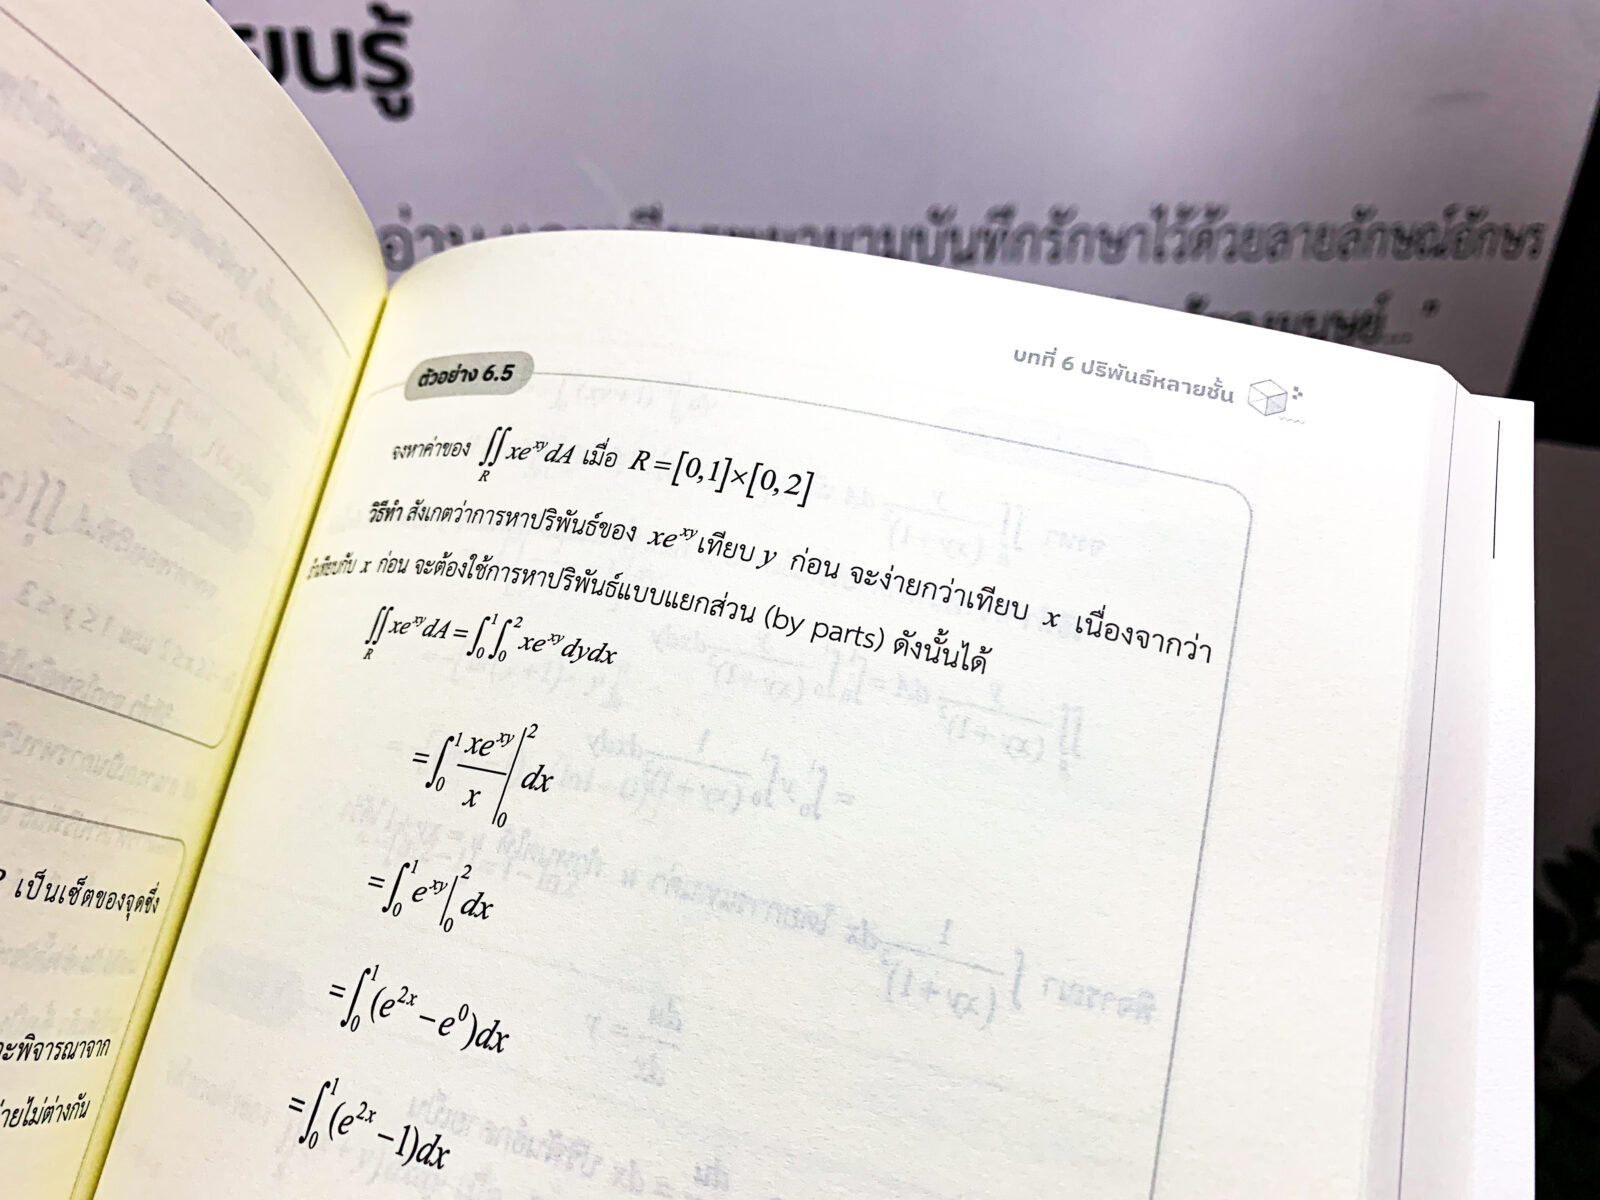 ยนรู้
บันทึกรักษาไว้ด้วยลายลักษณ์อักษร
มนุษย์..."
บทที่ 6 ปริพันธ์หลายชั้น
ตัวอย่าง 6.5
จงหาค่าของ ∬_R xe^{xy}dA เมื่อ R=[0,1]×[0,2]
วิธีทำ สังเกตว่าการหาปริพันธ์ของ xe^{xy} เทียบ y ก่อน จะง่ายกว่าเทียบ x เนื่องจากว่า
ถ้าเทียบกับ x ก่อน จะต้องใช้การหาปริพันธ์แบบแยกส่วน (by parts) ดังนั้นได้
∬_R xe^{xy}dA = ∫_0^1 ∫_0^2 xe^{xy}dydx
= ∫_0^1 xe^{xy}/x |_0^2 dx
= ∫_0^1 e^{xy} |_0^2 dx
= ∫_0^1 (e^{2x} − e^0)dx
= ∫_0^1 (e^{2x} − 1)dx
เป็นเซ็ตของจุดซึ่ง
จะพิจารณาจาก
ายไม่ต่างกัน